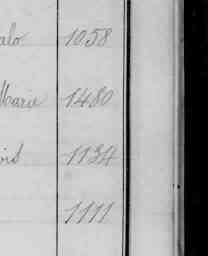 alo 1058
Marie 1480
ois 1134
1111